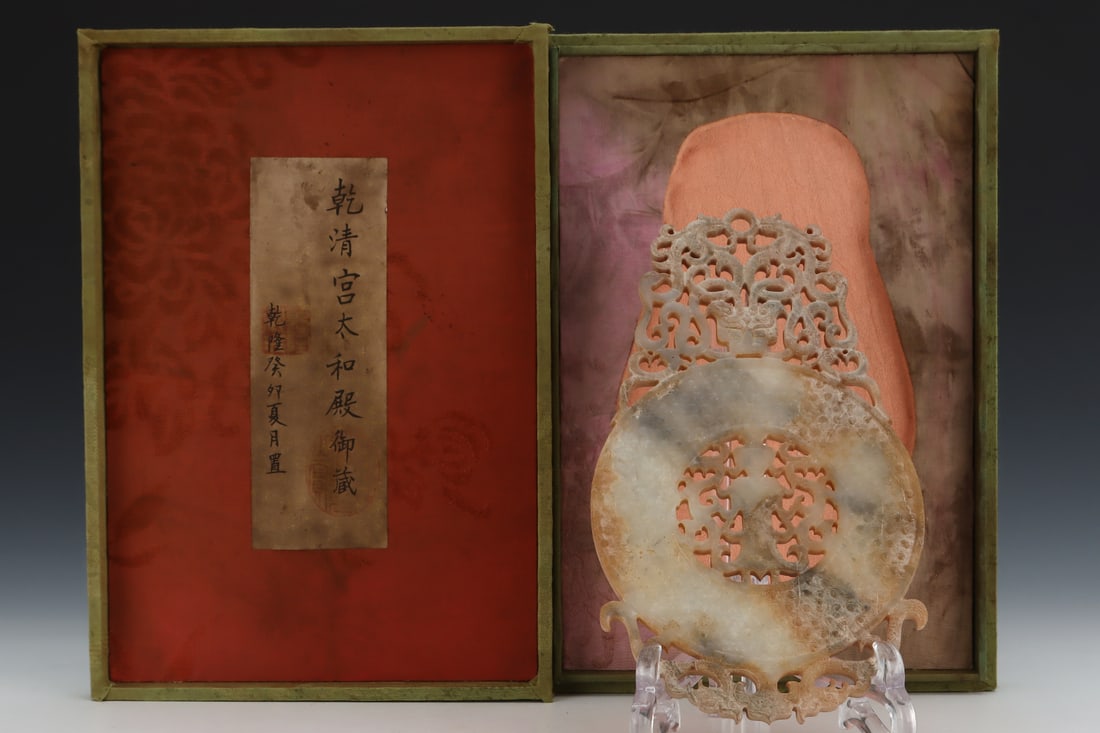 乾清宫太和殿御藏
乾隆癸卯夏月置